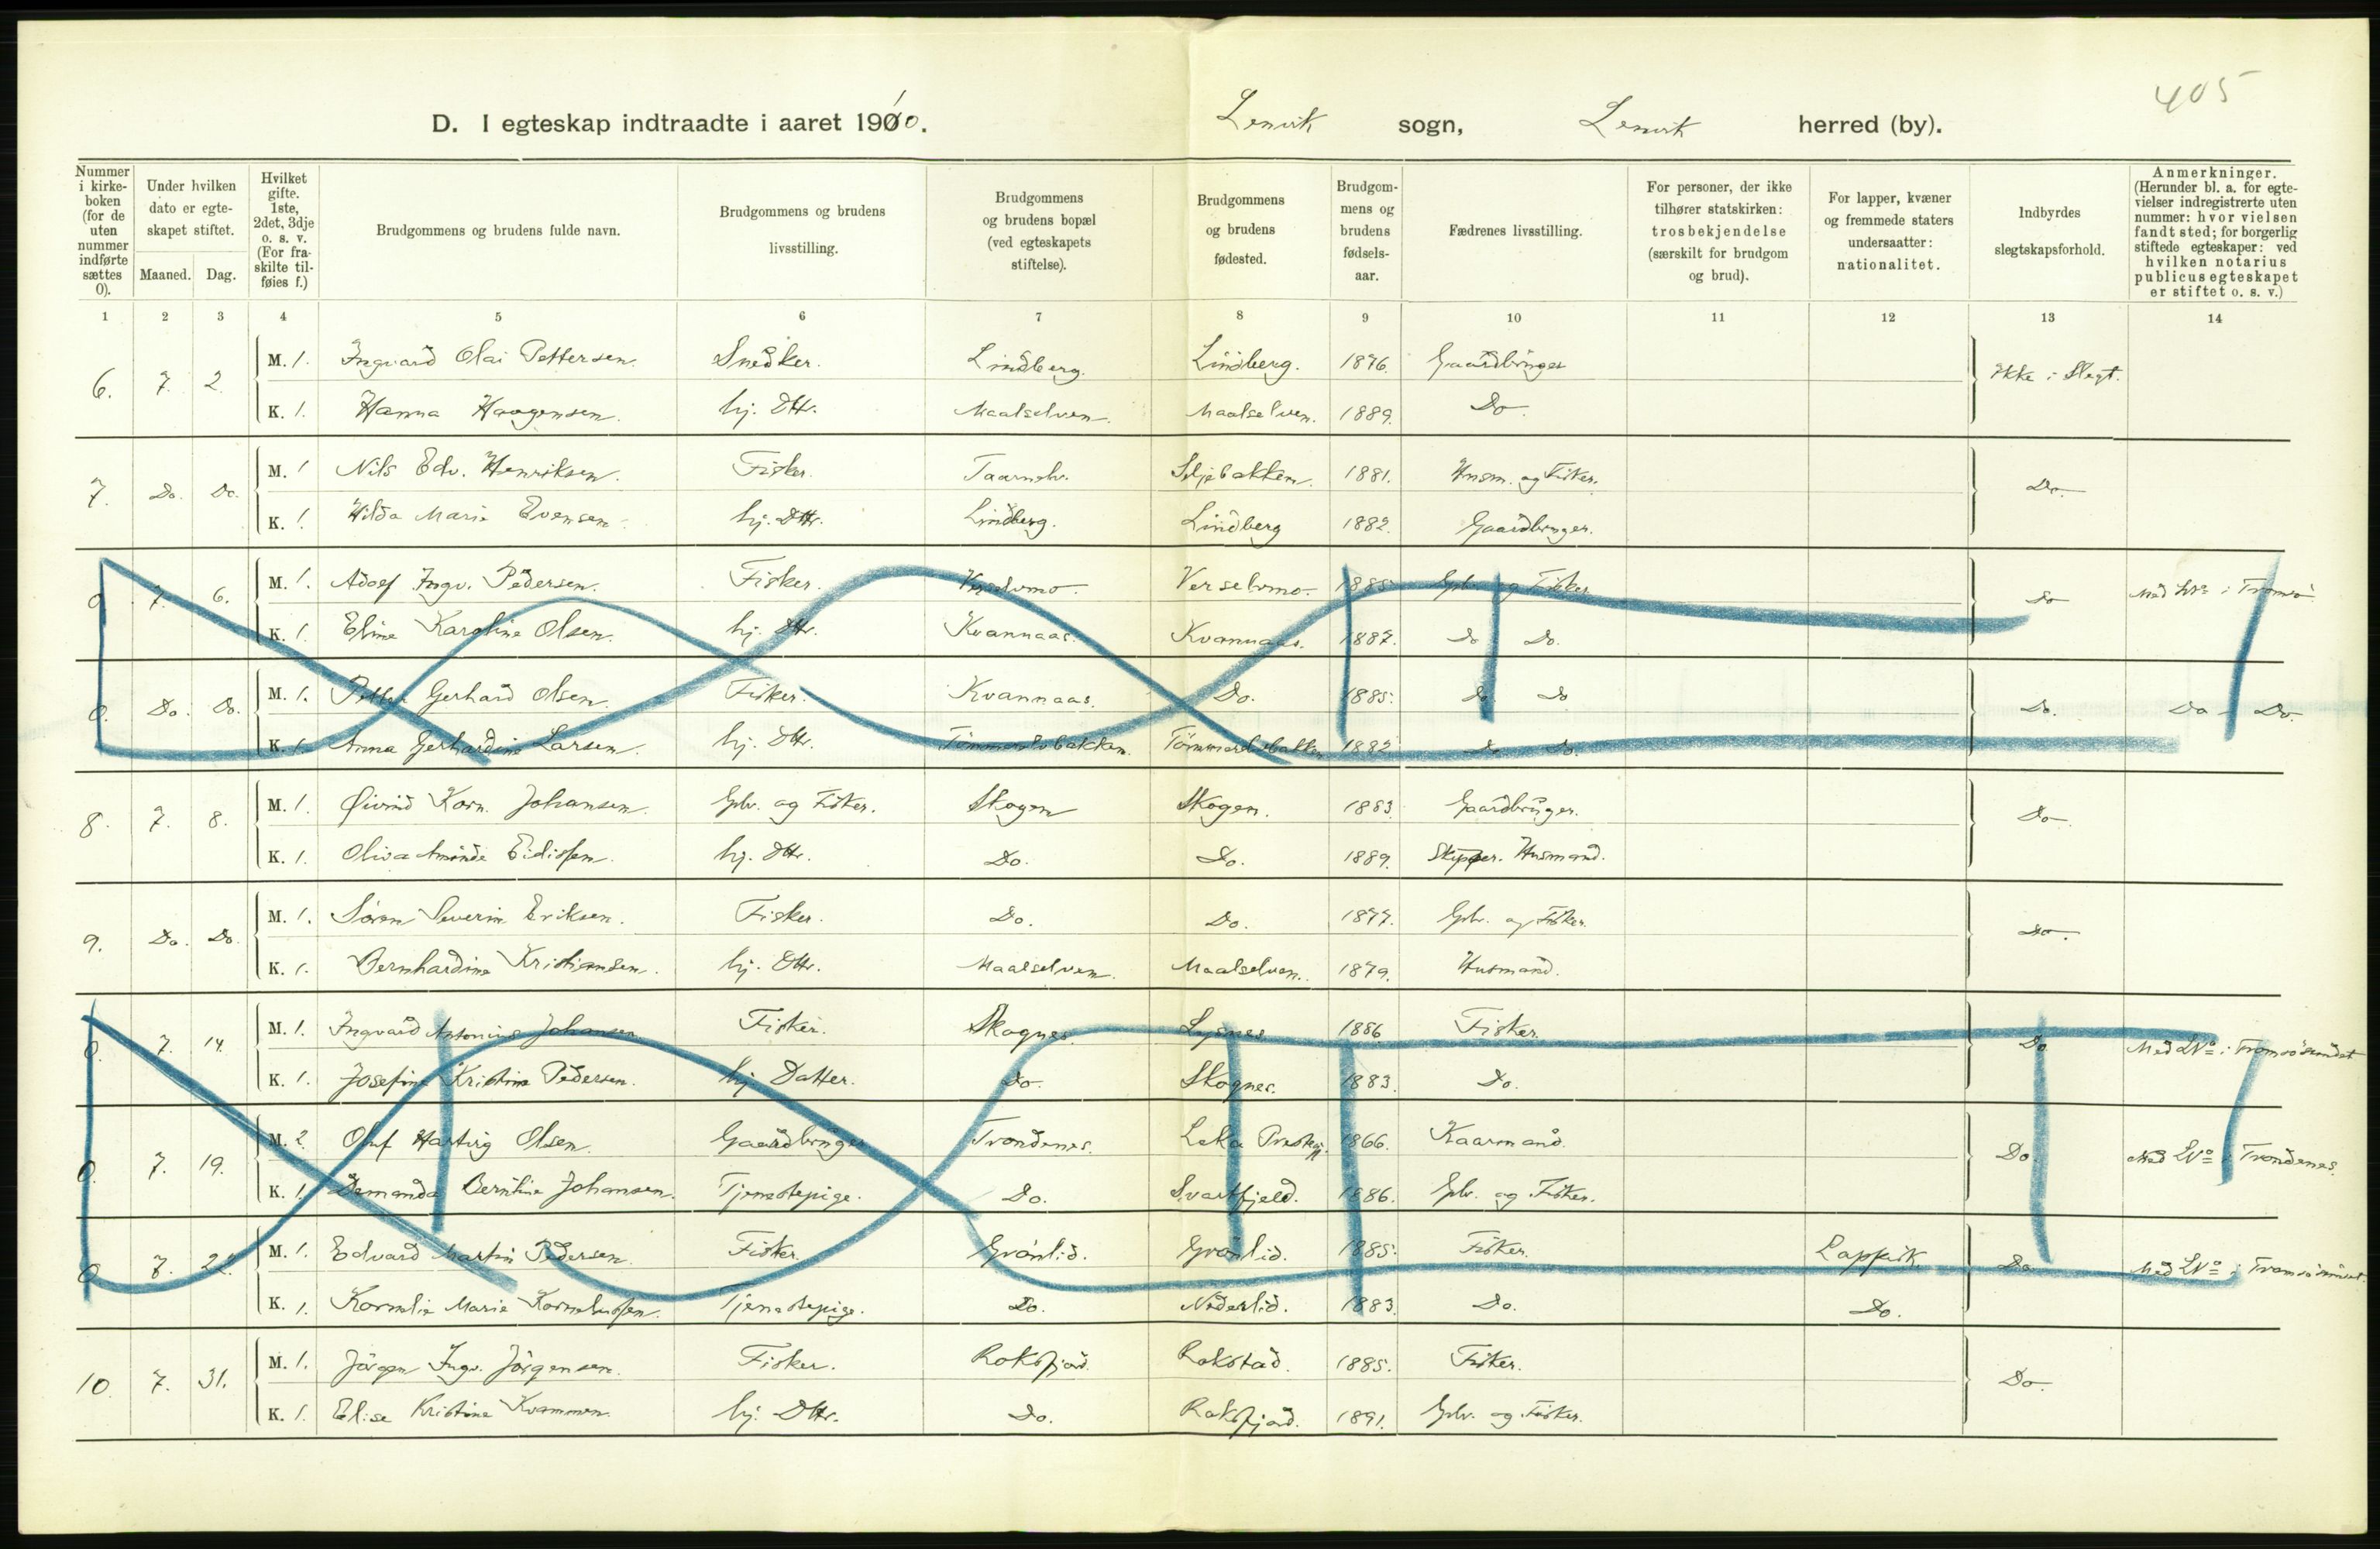 405
D. I egteskap indtraadte i aaret 1910. Lenvik sogn, Lenvik herred (by).
Nummer i kirke- boken (for de uten nummer indførte sættes 0).
Under hvilken dato er egte- skapet stiftet.
Maaned. Dag.
Hvilket gifte. 1ste, 2det, 3dje o. s. v. (For fra- skilte til- føies f.)
Brudgommens og brudens fulde navn.
Brudgommens og brudens livsstilling.
Brudgommens og brudens bopæl (ved egteskapets stiftelse).
Brudgommens og brudens fødested.
Brudgom- mens og brudens fødsels- aar.
Fædrenes livsstilling.
For personer, der ikke tilhører statskirken: trosbekjendelse (særskilt for brudgom og brud).
For lapper, kvæner og fremmede staters undersaatter: nationalitet.
Indbyrdes slegtskapsforhold.
Anmerkninger. (Herunder bl. a. for egte- vielser indregistrerte uten nummer: hvor vielsen fandt sted; for borgerlig stiftede egteskaper: ved hvilken notarius publicus egteskapet er stiftet o. s. v.)
1 2 3 4 5 6 7 8 9 10 11 12 13 14
6. 7. 2. M. 1. Ingvard Olai Pettersen. Snedker. Lindberg. Lindberg. 1876. Gaardbruger Ikke i Slegt.
K. 1. Hanna Haagensen. hj. Dttr. Maalselven. Maalselven. 1889. Do.
7. Do. Do. M. 1 Nils Edv. Henriksen. Fisker. Taarnelv. Seljebakken. 1881. Husm. og Fisker. Do.
K. 1. Hilda Marie Evensen. hj. Dttr. Lindberg. Lindberg 1882. Gaardbruger.
0. 7. 6. M. 1. Adolf Ingv. Pedersen. Fisker. Verselvmo. Verselvmo. 1885 Gbr. og Fisker Do Med LNo i Tromsö
K. 1. Eline Karoline Olsen. hj. Dttr. Kvannaas. Kvannaas. 1887. Do Do.
0. Do. Do. M. 1. Petter Gerhard Olsen. Fisker. Kvannaas. Do. 1885. Do. Do Do. Do - Do.
K. 1. Anna Gerhardine Larsen. hj. Dttr. Tömmerelvbakken. Tömmerelvbakken 1882. Do Do.
8. 7. 8. M. 1. Øivind Korn. Johansen. Gbr. og Fisker. Skogen Skogen. 1883. Gaardbruger. Do.
K. 1. Oliva Aminde Eidissen. hj. Dttr. Do. Do. 1889. Skipper. Husmand.
9. Do. Do. M. 1. Sören Severin Eriksen. Fisker. Do. Do. 1877. Gbr. og Fisker. Do.
K. 1. Bernhardine Kristiansen. hj. Dttr. Maalselven. Maalselven. 1879. Husmand.
0. 7. 14. M. 1. Ingvard Antonius Johansen Fisker. Skognes. Lysnes. 1886 Fisker. Do Med LNo i Tromsösundet
K. 1. Josefine Kristine Pedersen. hj Datter. Do. Skognes. 1883. Do.
0. 7. 19. M. 2. Oluf Hartvig Olsen. Gaardbruger Trondenes. Leka Prestegj. 1866. Kaarmand. Do Med LNo i Trondenes.
K. 1. Demanda Berntine Johansen. Tjenestepige. Do. Svartfjeld. 1886. Gbr. og Fisker.
0 7. 22. M. 1. Edvard Martin Pedersen. Fisker. Grönlid. Grönlid. 1885. Fisker. Lappisk. Do Med LNo i Tromsösundet.
K. 1. Kornelie Marie Korneliussen. Tjenestepige. Do. Nederlid. 1883. Do. Do.
10. 7. 31. M. 1. Jörgen Ingv. Jörgensen. Fisker. Roksfjord. Rokstad. 1885. Fisker. Do.
K. 1. Elise Kristine Kvammen. hj. Dttr. Do. Roksfjord. 1891. Gbr. og Fisker.